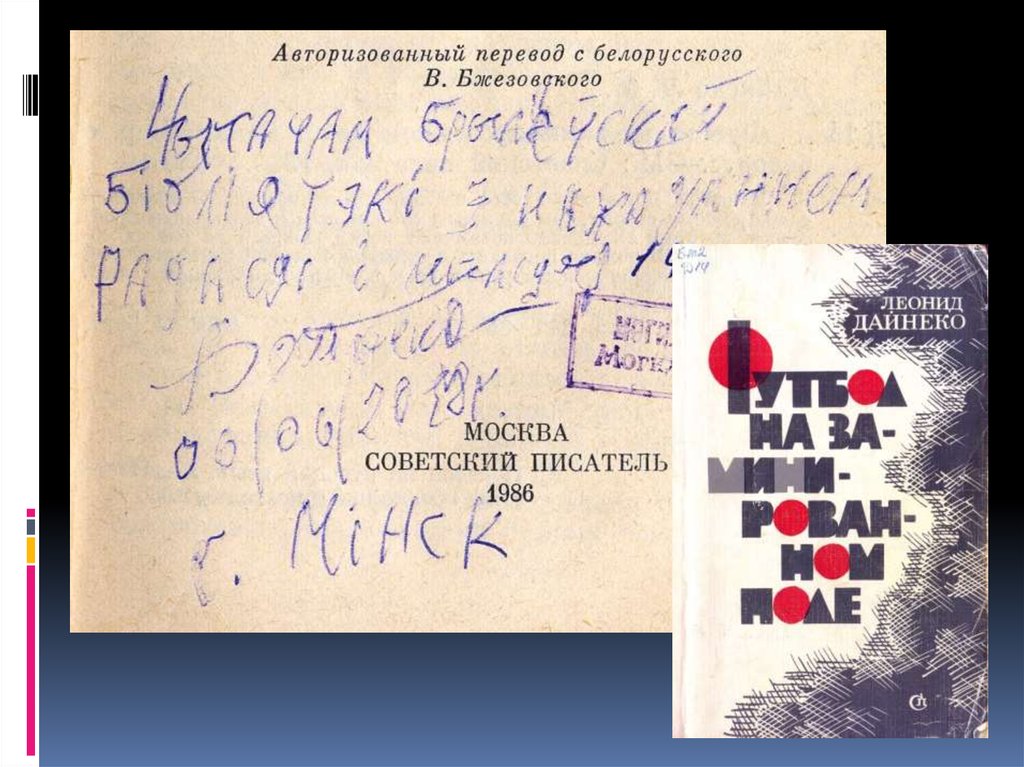 Авторизованный перевод с белорусского
В. Бжезовского
Чытачам Брылёўскай
бібліятэкі з пажаданнем
радасці і шчасця
Дайнеко
06/06/2012г.
МОСКВА
СОВЕТСКИЙ ПИСАТЕЛЬ
1986
г. Мінск
ЛЕОНИД
ДАЙНЕКО
ФУТБОЛ
НА ЗА-
МИНИ-
РОВАН-
НОМ
ПОЛЕ
СП